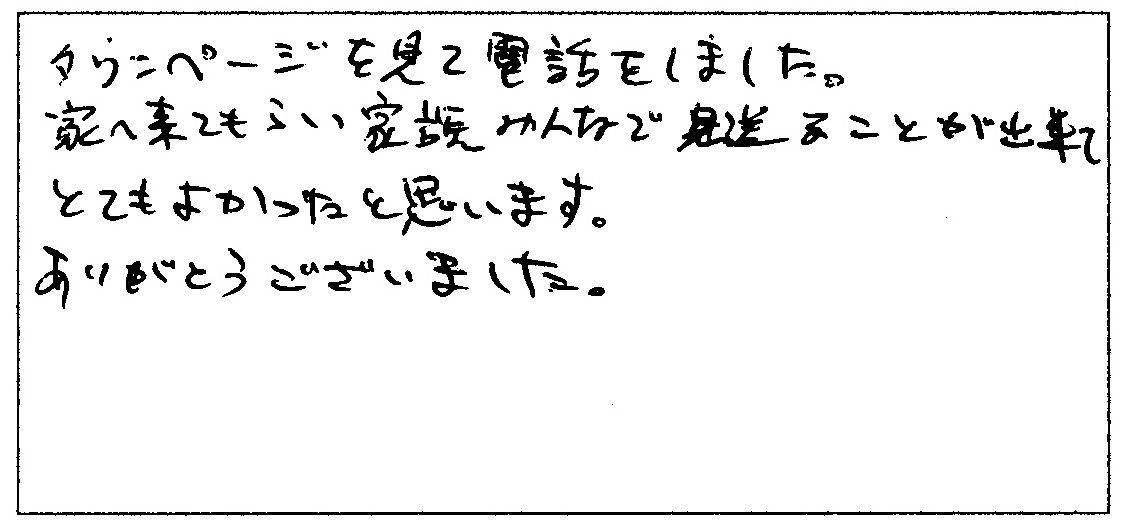 タウンページを見て電話をしました。
家へ来てもらい家族みんなで見送ることが出来て
とてもよかったと思います。
ありがとうございました。